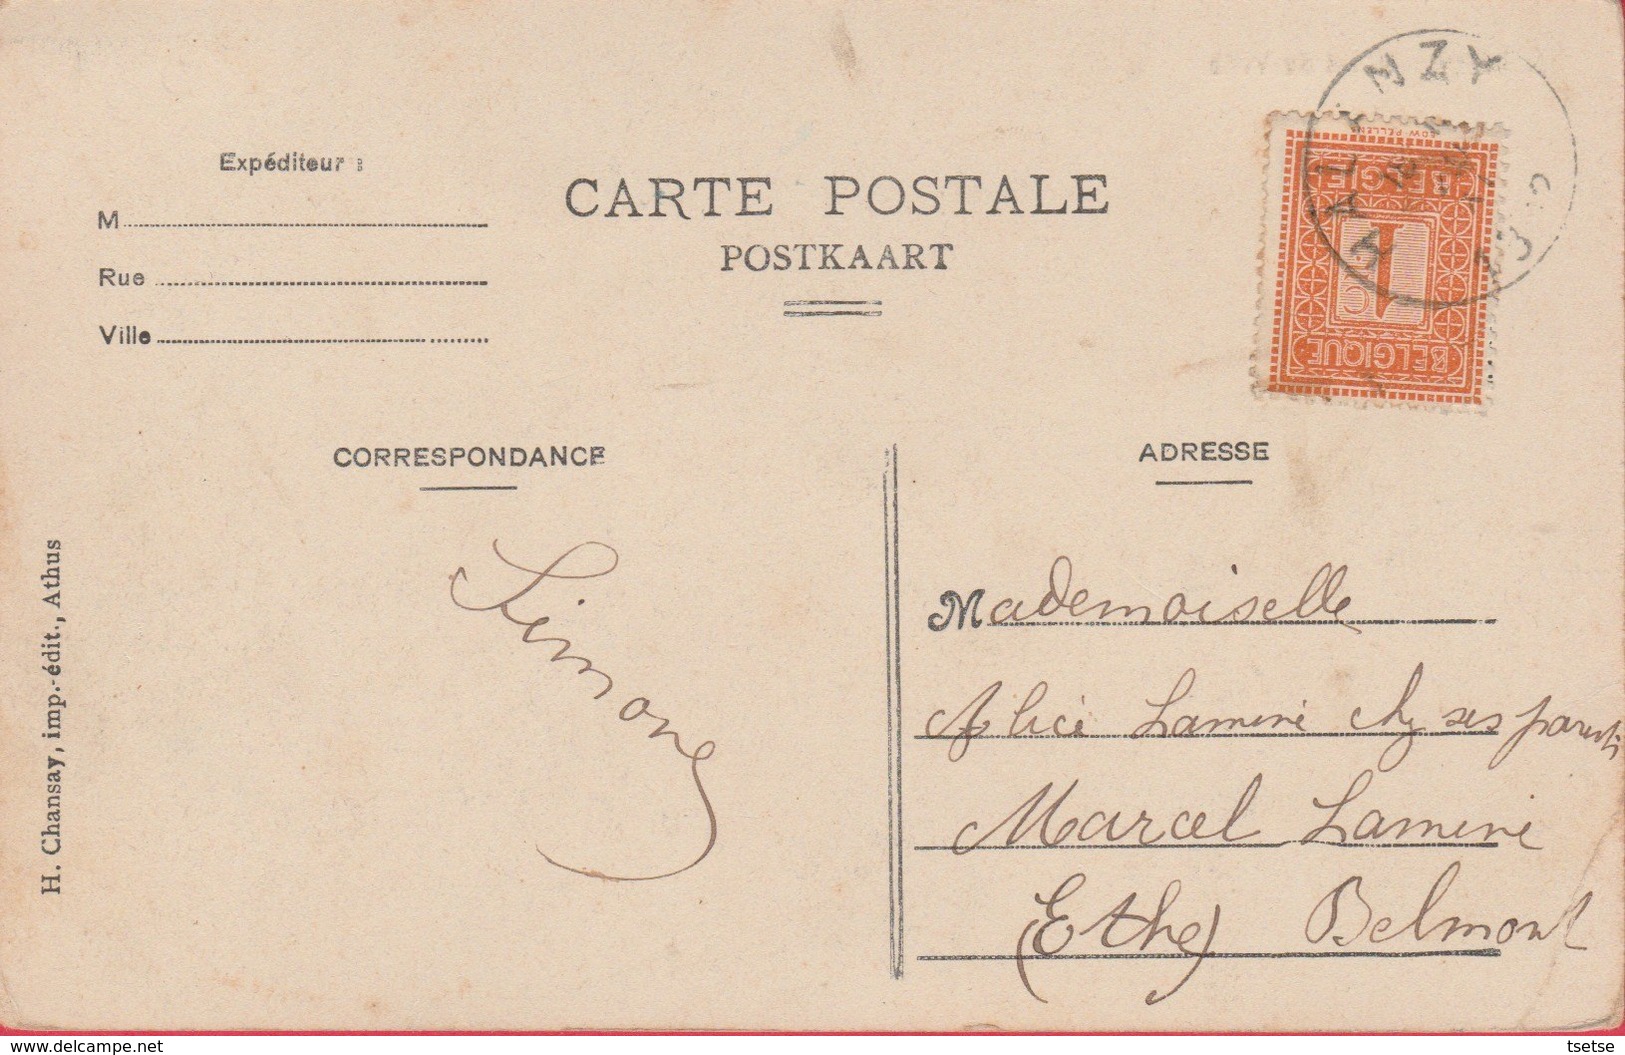 Expéditeur :
M
Rue
Ville
CARTE POSTALE
POSTKAART
HALANZY
BELGIE
1
C
BELGIQUE
CORRESPONDANCE
ADRESSE
H. Chansay, imp.-édit., Athus
Simone
Mademoiselle
Alice Laminé chez ses parents
Marcel Laminé
(Ethe) Belmont
delcampe.net
tsetse